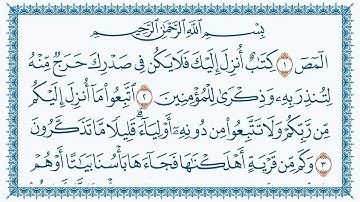 بِسْمِ اللَّهِ الرَّحْمَٰنِ الرَّحِيمِ
الٓمٓصٓ ١ كِتَٰبٌ أُنزِلَ إِلَيْكَ فَلَا يَكُن فِي صَدْرِكَ حَرَجٌ مِّنْهُ
لِتُنذِرَ بِهِۦ وَذِكْرَىٰ لِلْمُؤْمِنِينَ ٢ ٱتَّبِعُوا۟ مَآ أُنزِلَ إِلَيْكُم
مِّن رَّبِّكُمْ وَلَا تَتَّبِعُوا۟ مِن دُونِهِۦٓ أَوْلِيَآءَ ۗ قَلِيلًا مَّا تَذَكَّرُونَ
٣ وَكَم مِّن قَرْيَةٍ أَهْلَكْنَٰهَا فَجَآءَهَا بَأْسُنَا بَيَٰتًا أَوْ هُمْ